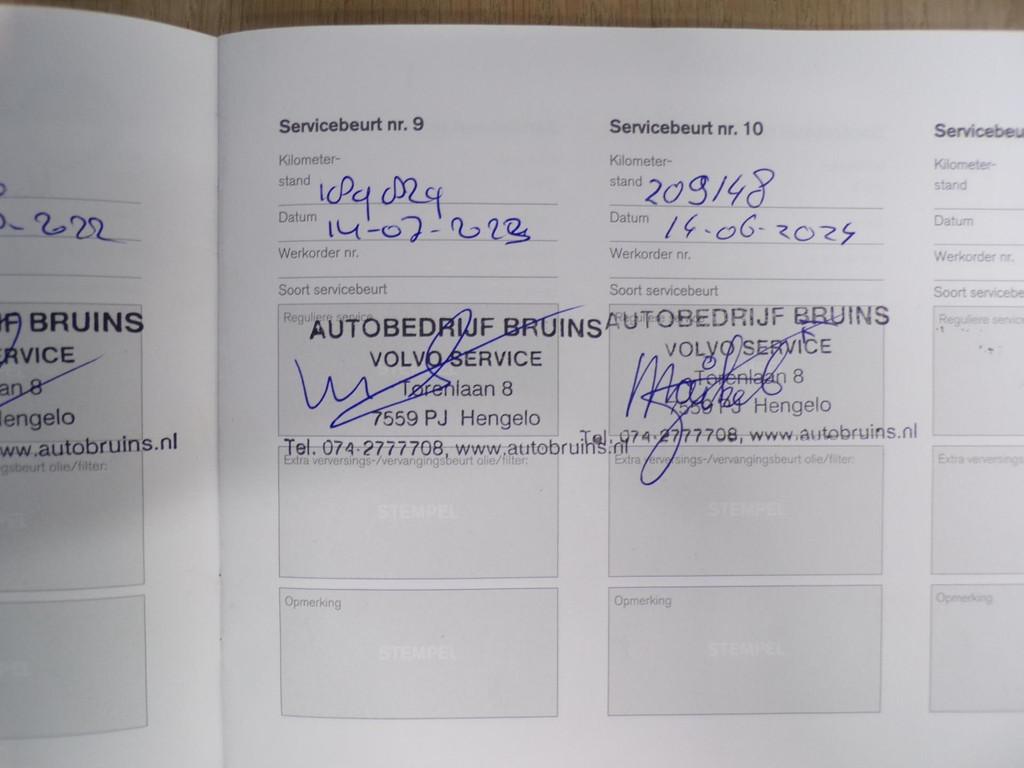 -2022
F BRUINS
RVICE
an 8
Hengelo
ww.autobruins.nl
gsbeurt olie/filter:
Servicebeurt nr. 9
Kilometer-
stand 189829
Datum 14-07-2023
Werkorder nr.
Soort servicebeurt
Reguliere service
AUTOBEDRIJF BRUINS
VOLVO SERVICE
Torenlaan 8
7559 PJ Hengelo
Tel. 074-2777708, www.autobruins.nl
Extra verversings-/vervangingsbeurt olie/filter:
STEMPEL
Opmerking
STEMPEL
Servicebeurt nr. 10
Kilometer-
stand 209148
Datum 14-06-2024
Werkorder nr.
Soort servicebeurt
AUTOBEDRIJF BRUINS
VOLVO SERVICE
Torenlaan 8
7559 PJ Hengelo
Tel. 074-2777708, www.autobruins.nl
Extra verversings-/vervangingsbeurt olie/filter:
STEMPEL
Opmerking
STEMPEL
Servicebeu
Kilometer-
stand
Datum
Werkorder nr.
Soort servicebe
Reguliere service
Extra verversings
Opmerking